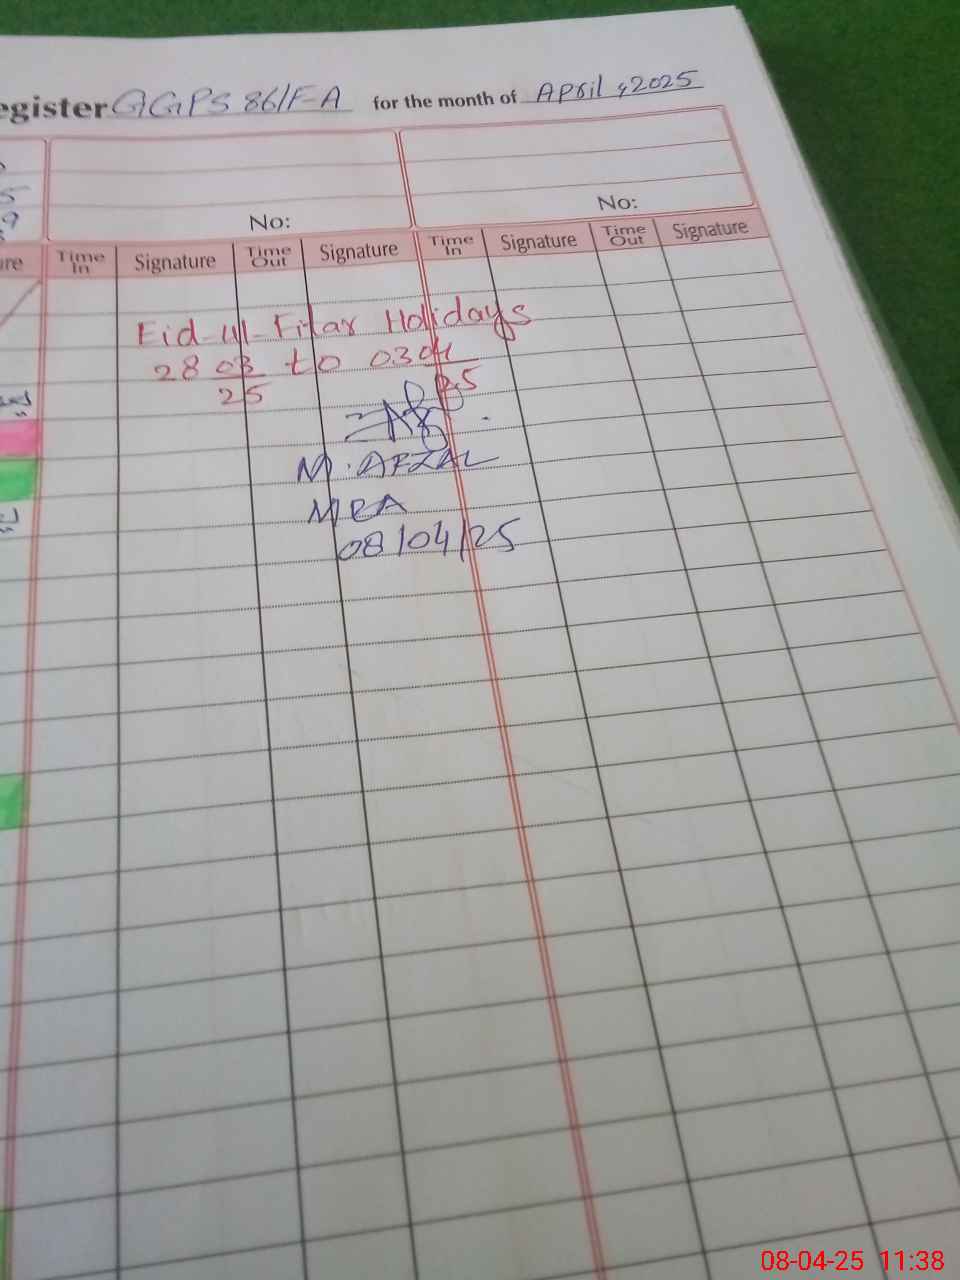 egister GGPS 86/F-A for the month of April, 2025
5
9
No: No:
ure Time In Signature Time Out Signature Time In Signature Time Out Signature
Eid-ul-Fitar Holidays
28 03/25 to 03 04/25
M. AFZAL
MEA
08/04/25
08-04-25 11:38